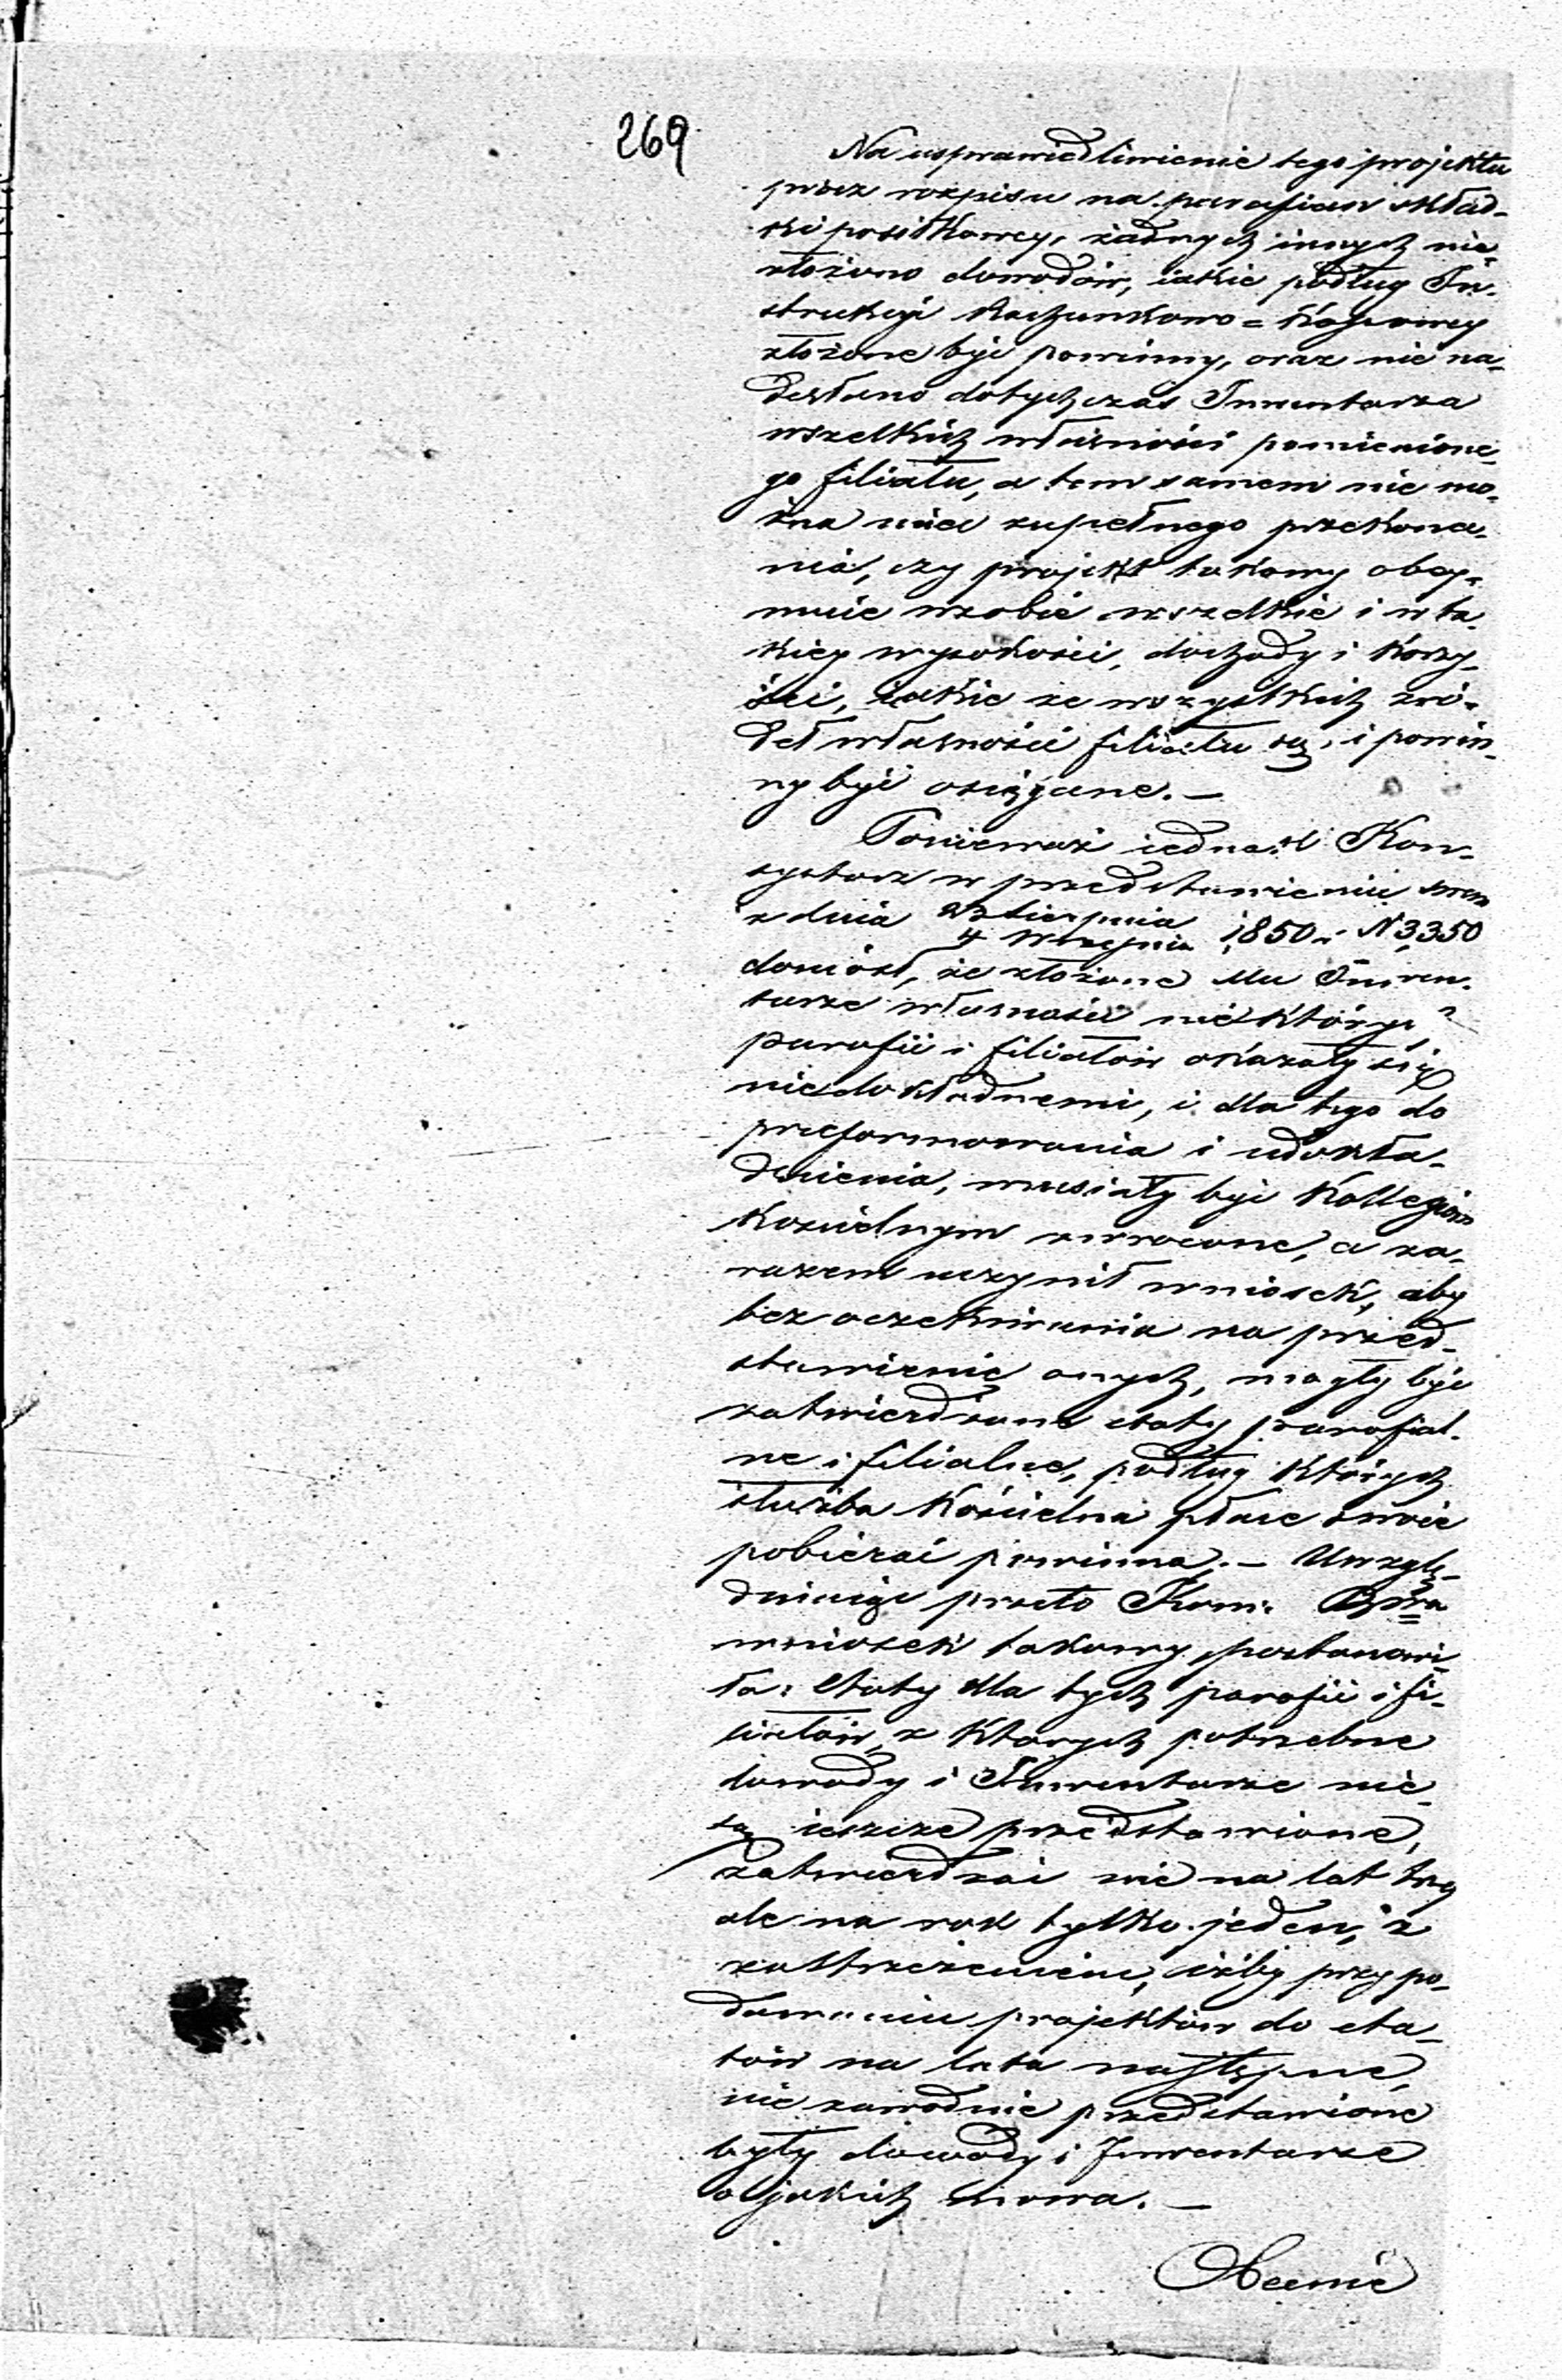 269
Na usprawiedliwienie tego projektu
prócz rozpisu na parafian skład-
ki posiłkowey, żadnych innych nie-
złożono dowodów, iakie podług In-
strukcyi Rachunkowo=Kassowey
złożone być powinny, oraz nie na-
desłano dotychczas Inwentarza
wszelkich własności pomienione-
go filiału, a tem samem nie mo-
żna mieć zupełnego przekona-
nia, czy projekt takowy obey-
muie w sobie wszelkie i w ta-
kiey wysokości, dochody i korzy-
ści, iakie ze wszystkich źró-
deł własności filiału są, i powin-
ny być osiągane. —
Ponieważ iednak Kon-
systorz w przedstawieniu swem
z dnia 23 Sierpnia / 4 Września 1850 r. N 3,350
doniósł, że złożone Mu Inwen-
tarze własności niektórych
parafii i filiałów okazały się
niedokładnemi, i dla tego do
preformowania i udokła-
dnienia, musiały być Kollegiom
Kościelnym zwrócone, a za-
razem uczynił wniosek, aby
bez oczekiwania na przed-
stawienie onych, mogły być
zatwierdzone etaty parafial-
ne i filialne, podług których
służba Kościelna płace swoie
pobierać powinna. — Uwzglę-
dniaiąc przeto Kom: Rząwa
wniosek takowy, postanowi-
ła: Etaty dla tych parafii i fi-
liałów, z których potrzebne
dowody i Inwentarze nie-
są ieszcze przedstawione,
zatwierdzać nie na lat trzy
ale na rok tylko jeden, z
zastrzeżeniem, iżby przy po-
dawaniu projektów do eta-
tów na lata następne,
niezawodnie przedstawione
były dowody i Inwentarze
o jakich mowa. —
Obecnie